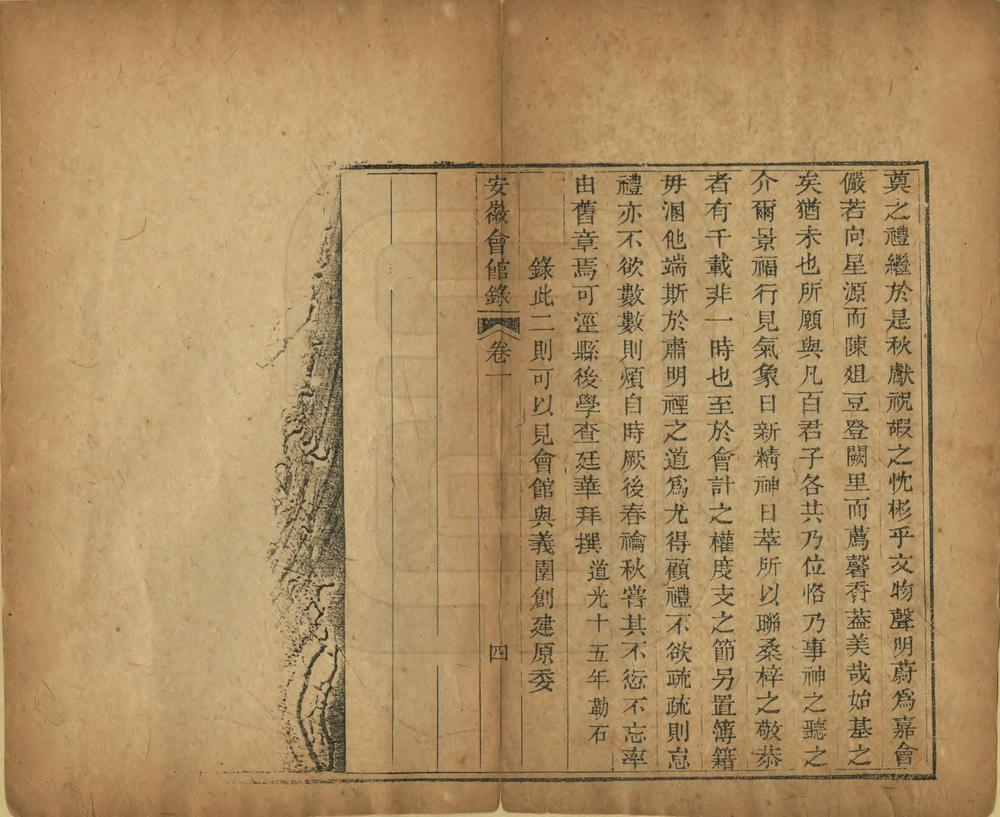 奠之禮繼於是秋獻祝嘏之忱彬乎文物聲明蔚爲嘉會
儼若向星源而陳俎豆登闕里而薦馨香葢美哉始基之
矣猶未也所願與凡百君子各共乃位恪乃事神之聽之
介爾景福行見氣象日新精神日萃所以聯桑梓之敬恭
者有千載非一時也至於會計之權度支之節另置簿籍
毋溷他端斯於肅明禋之道爲尤得顧禮不欲疏疏則怠
禮亦不欲數數則煩自時厥後春禴秋嘗其不愆不忘率
由舊章焉可涇縣後學查廷華拜撰 道光十五年勒石
錄此二則可以見會館與義園創建原委
安徽會館錄 卷一 四